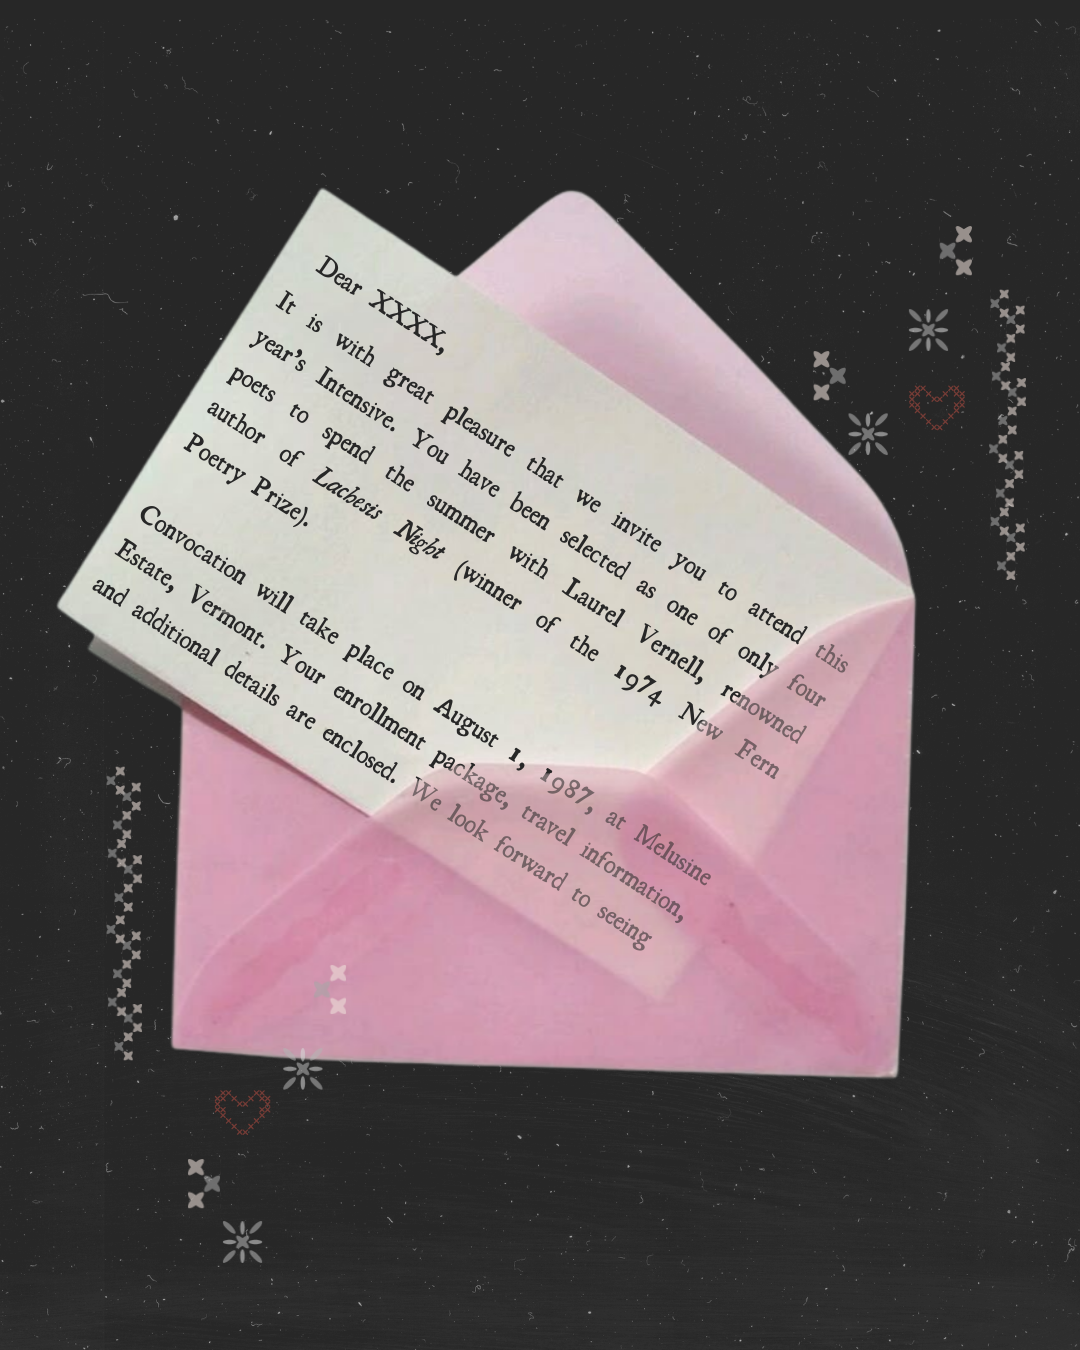 Dear XXXX,
It is with great pleasure that we invite you to attend this
year's Intensive. You have been selected as one of only four
poets to spend the summer with Laurel Vernell, renowned
author of Lachesis Night (winner of the 1974 New Fern
Poetry Prize).
Convocation will take place on August 1, 1987, at Melusine
Estate, Vermont. Your enrollment package, travel information,
and additional details are enclosed. We look forward to seeing